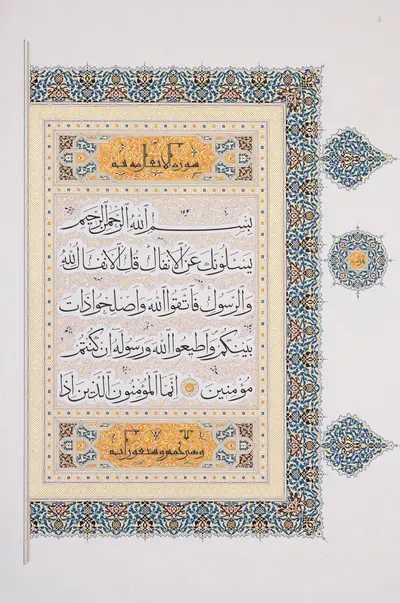 سورة الانفال مدنية
بسم الله الرحمن الرحيم
يسئلونك عن الانفال قل الانفال لله
والرسول فاتقوا الله واصلحوا ذات
بينكم واطيعوا الله ورسوله ان كنتم
مؤمنين انما المؤمنون الذين اذا
وهي خمس وسبعون آية